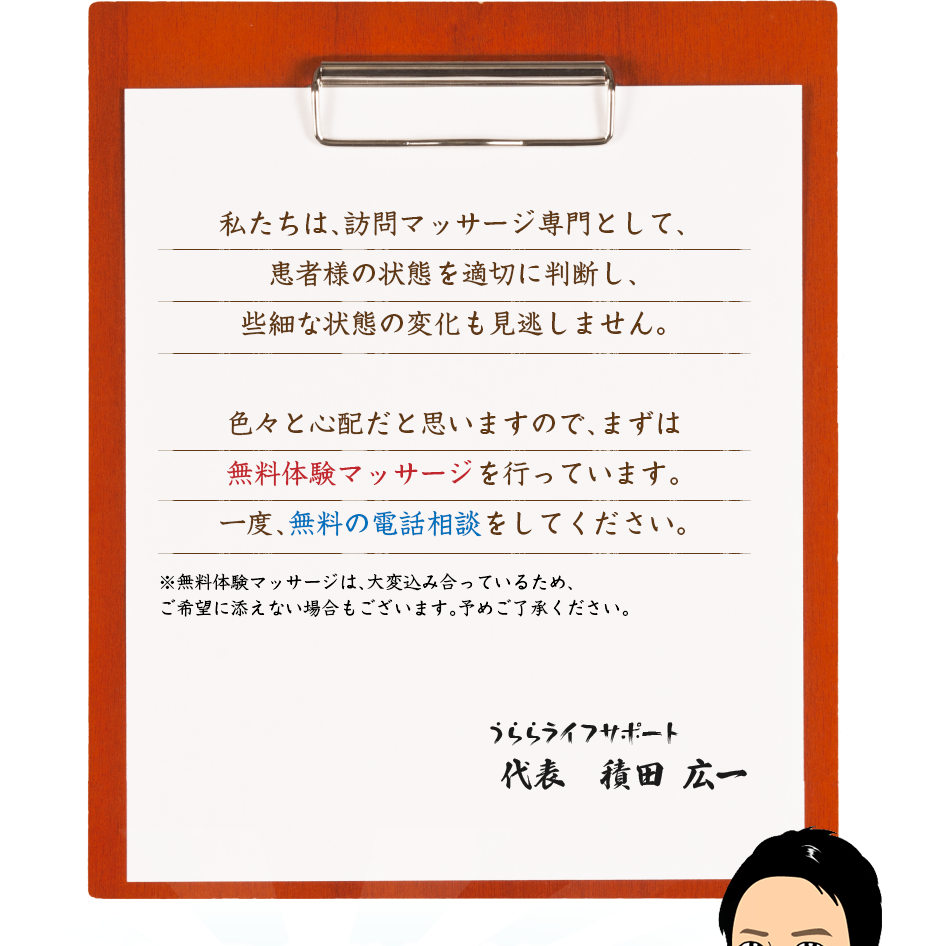 私たちは、訪問マッサージ専門として、
患者様の状態を適切に判断し、
些細な状態の変化も見逃しません。
色々と心配だと思いますので、まずは
無料体験マッサージを行っています。
一度、無料の電話相談をしてください。
※無料体験マッサージは、大変込み合っているため、
ご希望に添えない場合もございます。予めご了承ください。
うららライフサポート
代表　積田 広一